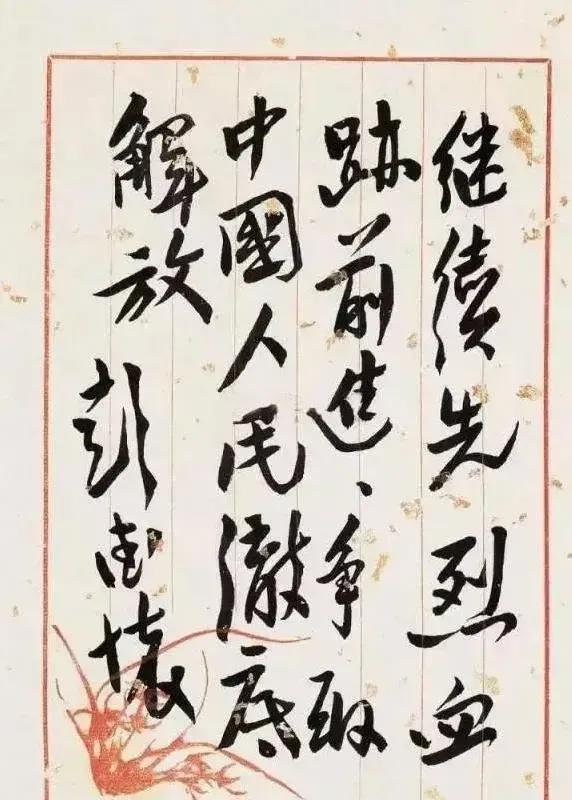 继续先烈血
跡前進、争取
中國人民澈底
解放 彭德懷